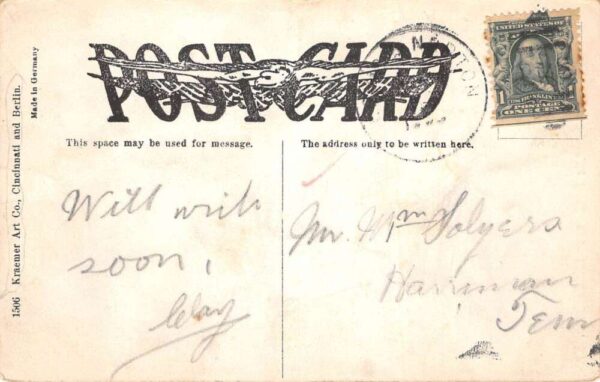 POST CARD
This space may be used for message.
The address only to be written here.
Will write
soon,
Clay
Mr. Wm Solyers
Harriman
Tenn
1506 Kraemer Art Co., Cincinnati and Berlin.
Made in Germany
UNITED STATES OF
1
FRANKLIN
POSTAGE
ONE